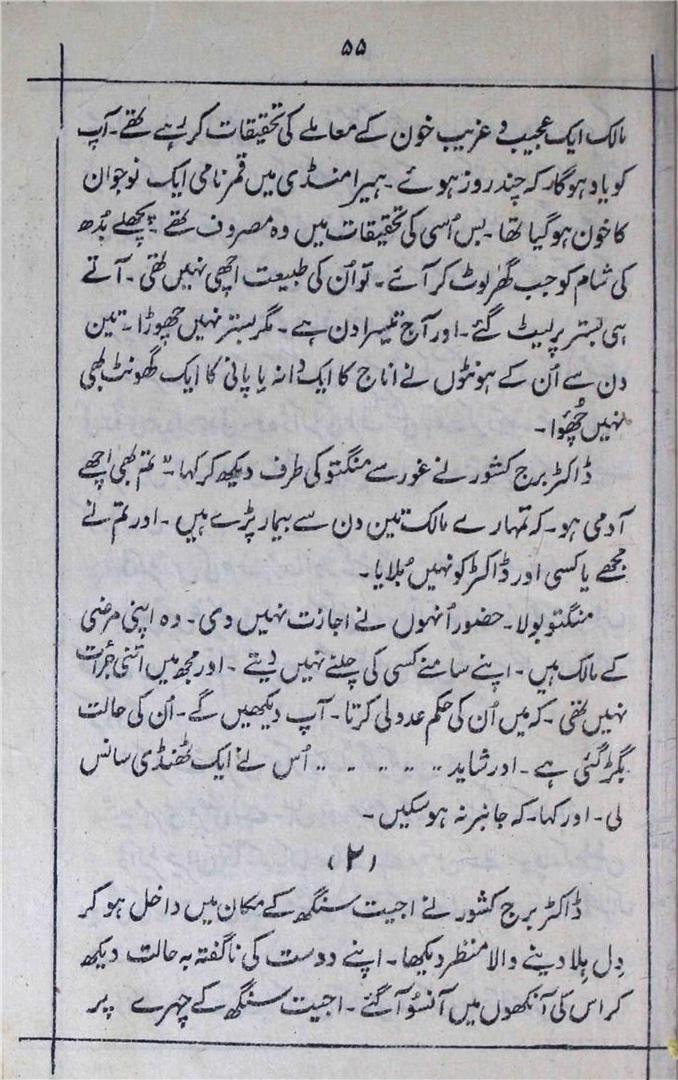 ۵۵
مالک ایک عجیب و غریب خون کے معاملے کی تحقیقات کر رہے تھے۔ آپ
کو یاد ہوگا۔ کہ چند روز ہوئے۔ ہیرا منڈی میں قمر نامی ایک نوجوان
کا خون ہوگیا تھا۔ بس اُسی کی تحقیقات میں وہ مصروف تھے۔ پچھلے بُدھ
کی شام کو جب گھر لوٹ کر آئے۔ تو اُن کی طبیعت اچھی نہیں تھی۔ آتے
ہی بستر پر لیٹ گئے۔ اور آج تیسرا دن ہے۔ مگر بستر نہیں چھوڑا۔ تین
دن سے اُن کے ہونٹوں نے اناج کا ایک دانہ یا پانی کا ایک گھونٹ بھی
نہیں چُھؤا۔
ڈاکٹر برج کشور نے غور سے منگتو کی طرف دیکھ کر کہا۔ "تم بھی اچھے
آدمی ہو۔ کہ تمہارے مالک تین دن سے بیمار پڑے ہیں۔ اور تم نے
مجھے یا کسی اور ڈاکٹر کو نہیں بُلایا۔
منگتو بولا۔ حضور اُنہوں نے اجازت نہیں دی۔ وہ اپنی مرضی
کے مالک ہیں۔ اپنے سامنے کسی کی چلنے نہیں دیتے۔ اور مجھ میں اتنی جُرأت
نہیں تھی۔ کہ میں اُن کی حکم عدولی کرتا۔ آپ دیکھیں گے۔ اُن کی حالت
بگڑ گئی ہے۔ اور شاید ۔۔ ۔ ۔ ۔ ۔۔ اُس نے ایک ٹھنڈی سانس
لی۔ اور کہا۔ کہ جانبر نہ ہو سکیں۔
(۲)
ڈاکٹر برج کشور نے اجیت سنگھ کے مکان میں داخل ہو کر
دِل ہِلا دینے والا منظر دیکھا۔ اپنے دوست کی ناگفتہ بہ حالت دیکھ
کر اس کی آنکھوں میں آنسُو آ گئے۔ اجیت سنگھ کے چہرے پر